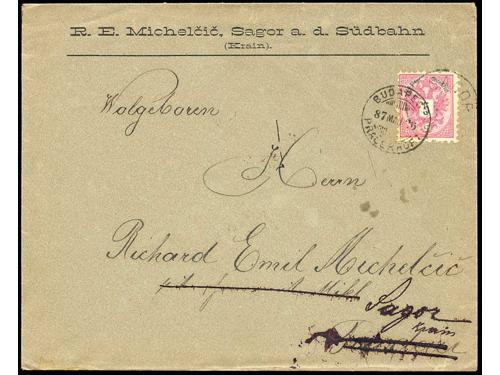 R. E. Michelčič, Sagor a. d. Südbahn
(Krain).
BUDAPEST
87
PRAGERHOF
Wolgeboren
Herrn
Richard Emil Michelčič
Sagor
Krain